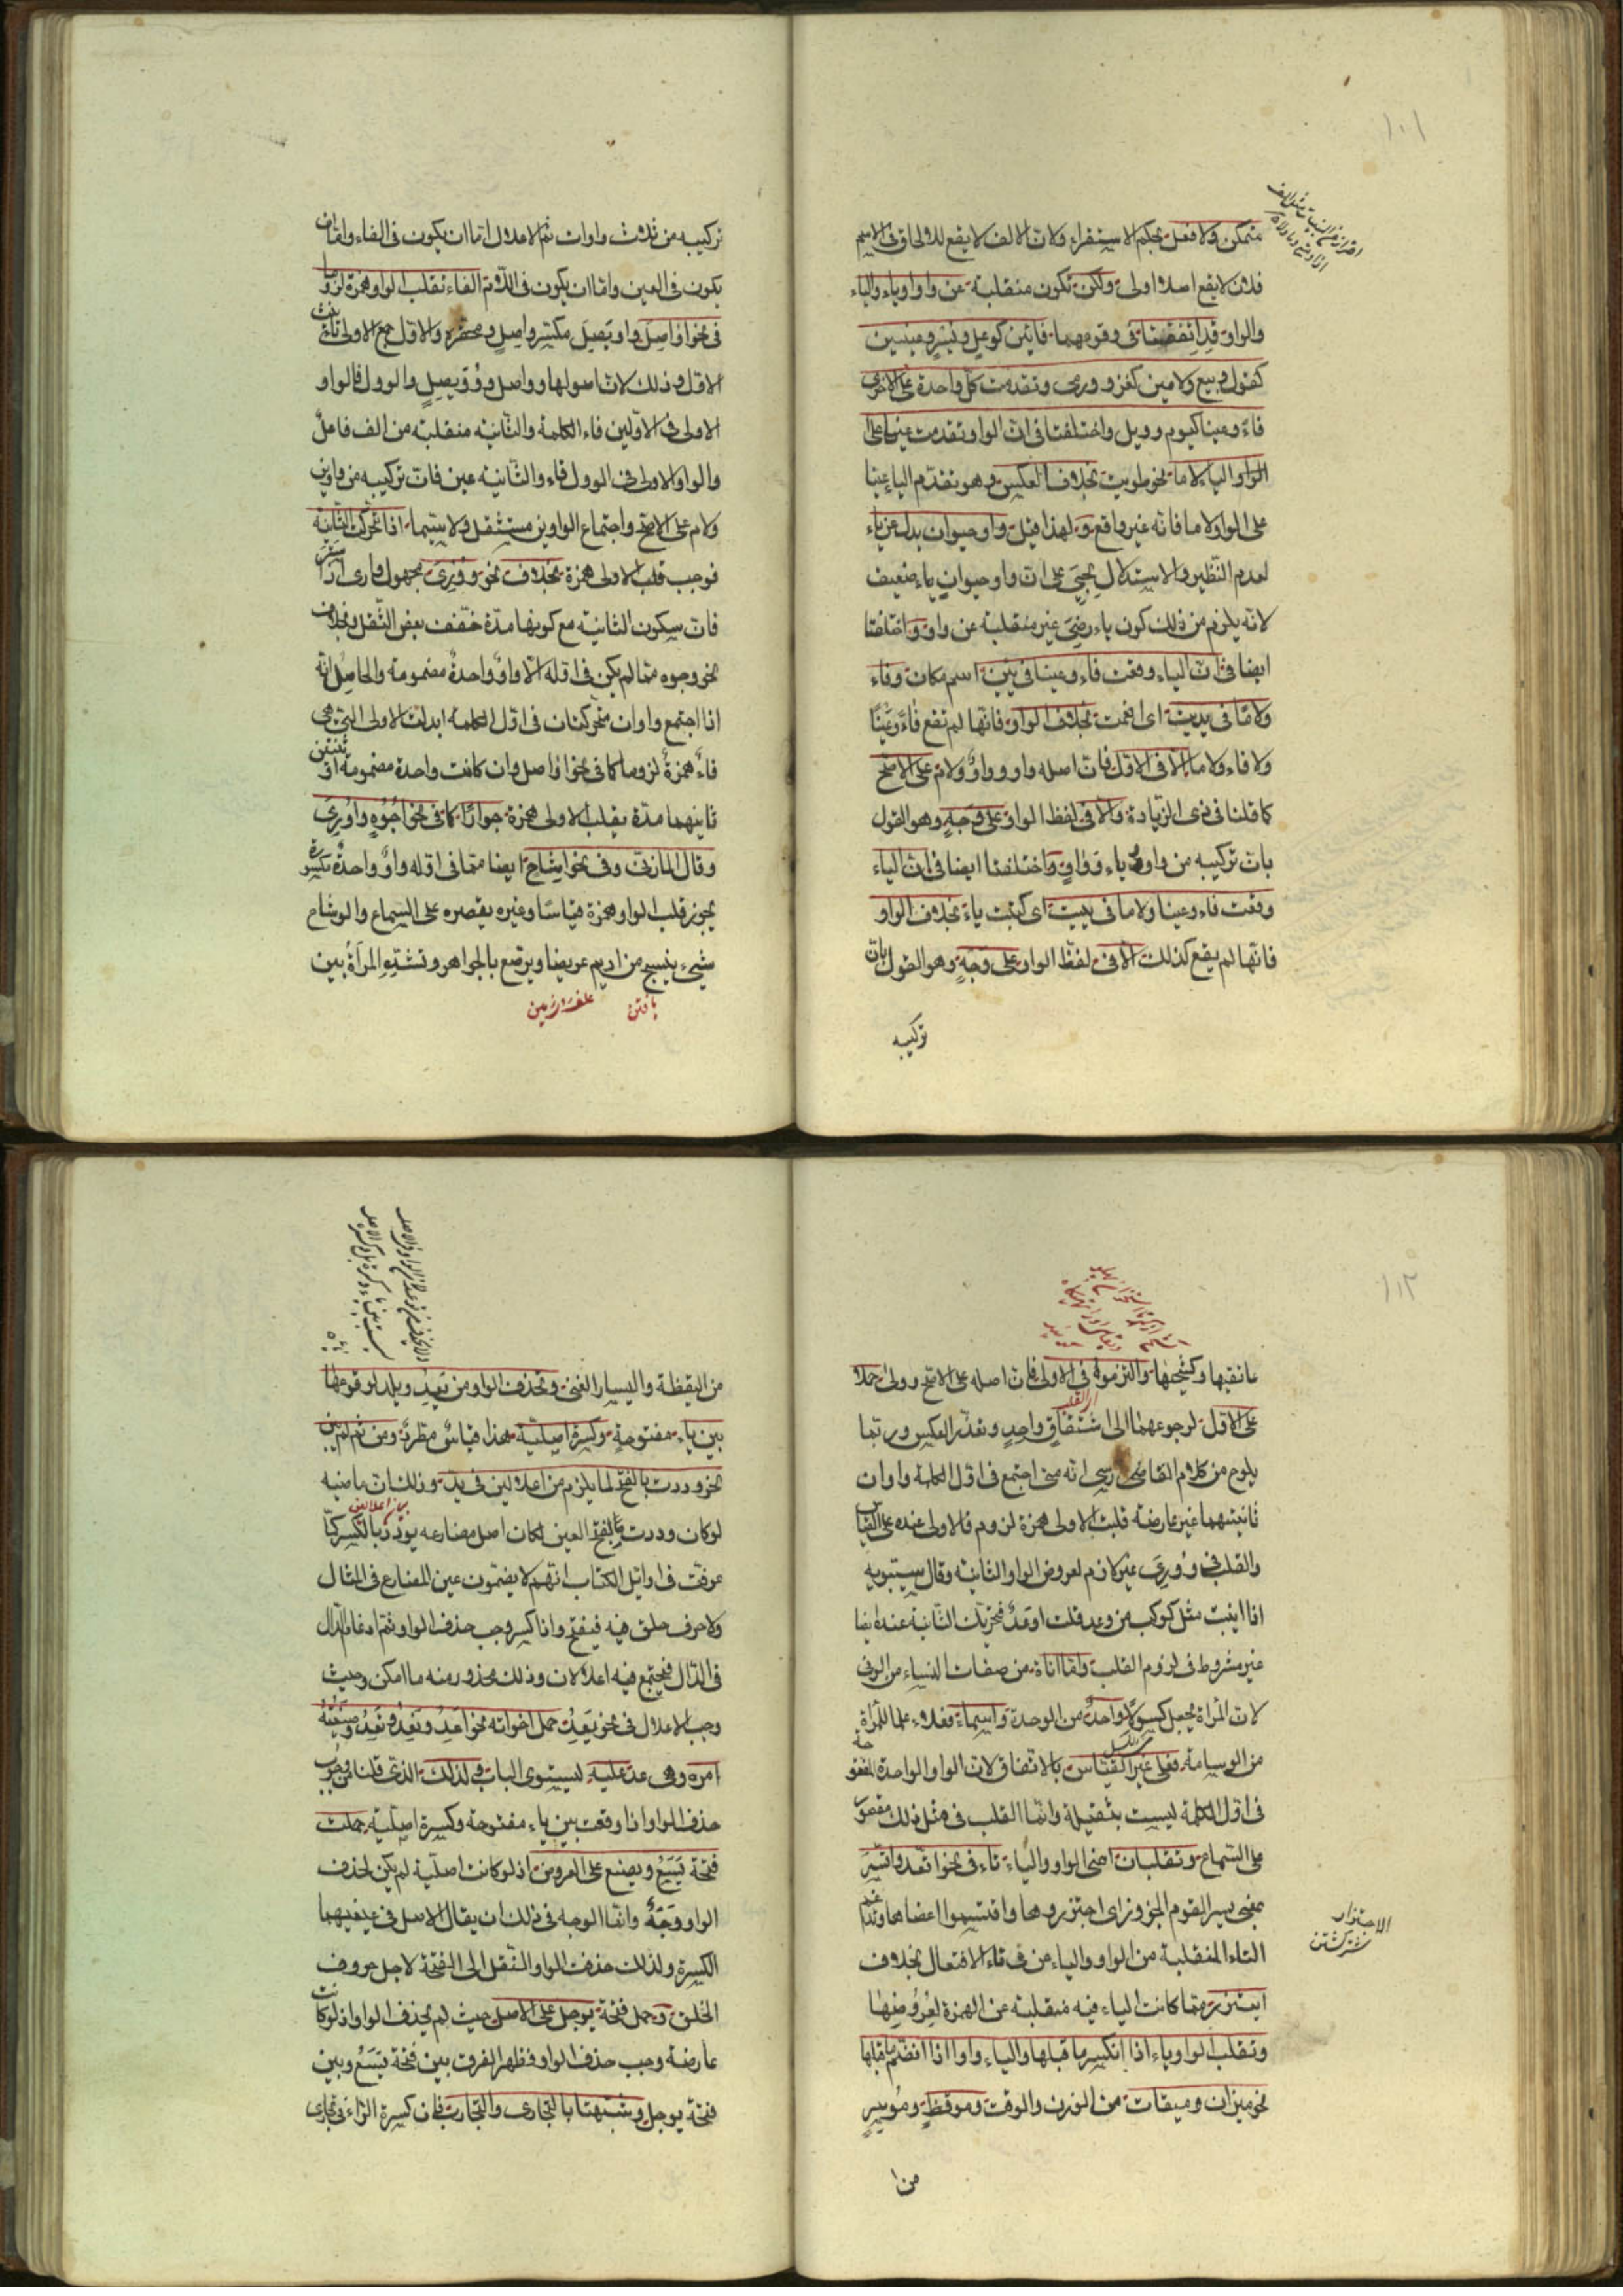 متمكن ولا فعل بحكم الاستقراء ولان الالف لا يقع للالحاق في الاسم
فلان لا يقع اصلا اولى ولكن تكون منقلبة عن واو او ياء والياء
والواو قد اتفقتا في وقوعهما فائين كوعد ويسر وعينين
كقول وبيع ولامين كغزو ورمي وتقدمت كل واحدة على الاخرى
فاء وعينا كيوم وويل واختلفتا في ان الواو تقدمت عينا على
الواو الياء لاما نحو طويت بخلاف العكس وهو تقدم الياء عينا
على الواو لاما فانه غير واقع ولهذا قيل واو حيوان بدل عن ياء
لعدم النظير والاستدلال بحيي على ان واو حيوان ياء ضعيف
لانه يلزم من ذلك كون ياء رضي غير منقلبة عن واو واختلفتا
ايضا في ان الياء وقعت فاء وعينا في يين اسم مكان وفاء
ولاما في يديت اي انعمت بخلاف الواو فانها لم تقع فاء وعينا
ولا فاء ولاما الا في الاول فان اصله واو وواو ولام على الاصح
كما قلنا في ذي الزيادة والا في لفظ الواو على وجه وهو القول
بان تركيبه من واو وياء وواو واختلفتا ايضا في ان الياء
وقعت فاء وعينا ولاما في ييت اي كتبت ياء بخلاف الواو
فانها لم يقع كذلك الا في لفظ الواو على وجه وهو القول بان
تركيبه
تركيبه من ثلاث واوات ثم الاعلال اما ان يكون في الفاء واما ان
يكون في العين واما ان يكون في اللام الفاء تقلب الواو همزة لزوما
في نحو اواصل واويصل مكسر واصل ومصغره والاول جمع الاولى تانيث
الاول وذلك لان اصولها وواصل وويصل والوول فالواو
الاولى في الاولين فاء الكلمة والثانية منقلبة من الف فاعل
والواو الاولى في الوول فاء والثانية عين فان تركيبه من واوين
ولام على الاصح واجتماع الواوين مستثقل ولا سيما اذا تحركت الثانية
فوجب قلب الاولى همزة بخلاف نحو ووري مجهول واري
فان سكون الثانية مع كونها مدة خفف بعض الثقل وبخلاف
نحو وجوه مما لم يكن في اوله الا واو واحدة مضمومة والحاصل انه
اذا اجتمع واوان متحركتان في اول الكلمة ابدلت الاولى التي هي
فاء همزة لزوما كما في نحو اواصل وان كانت واحدة مضمومة او
ثانيهما مدة يقلب الاولى همزة جوازا كما في نحو اجوه واوري
وقال المازني وفي نحو اشاح ايضا مما في اوله واو واحدة مكسورة
يجوز قلب الواو همزة قياسا وغيره يقصره على السماع والوشاح
شيء ينسج من اديم عريضا ويرصع بالجواهر وتشده المراة بين
بافتن
عاتقيها وكشحيها والتزموه في الاولى فان اصله على الاصح وولى حملا
على الاول لرجوعهما الى اشتقاق واحد وتعذر العكس وربما
يلوح من كلام القاضي انه متى اجتمع في اول الكلمة واوان
ثانيتهما غير عارضة قلبت الاولى همزة لزوم فالاولى عنده على القياس
والقلب في ووري غير لازم لعروض الواو الثانية وقال سيبويه
اذا بنيت مثل كوكب من وعد قلت اوعد فتحريك الثانية عنده ايضا
غير مشروط في لزوم القلب واما اناة من صفات النساء من الونى
لان المراة تجعل كسولا واحد من الوحدة واسماء فعلاء علما للمراة
من الوسامة فعلى غير القياس بالاتفاق لان الواو الواحدة المفتوحة
في اول الكلمة ليست بثقيلة وانما القلب في مثل ذلك مقصور
على السماع وتقلبان اعني الواو والياء تاء في نحو اتعد واتسر
بمعنى يسر القوم الجزور اي اجتزروها واقتسموا اعضاءها
التاء المنقلبة من الواو والياء من في تاء الافتعال بخلاف
ايتزر مما كانت الياء فيه منقلبة عن الهمزة لعروضها
وتقلب الواو ياء اذا انكسر ما قبلها والياء واوا اذا انضم ما قبلها
نحو ميزان وميقات من الوزن والوقت وموقظ وموسر
الاجتزار
شتر كشتن
من ا
من اليقظة واليسار الغنى وتحذف الواو من يعد ويلد لوقوعها
بين ياء مفتوحة وكسرة اصلية هذا قياس مطرد ومن ثم لم يبن
نحو وددت بالفتح لما يلزم من اعلالين في يد وذلك ان ماضيه
لو كان وددت بالفتح العين لكان اصل مضارعه يودد بالكسر كما
عرفت في اوائل الكتاب انهم لا يضمون عين المضارع في المثال
ولا حرف حلق فيه فيفتح واذا كسر وجب حذف الواو ثم ادغام الدال
في الدال فيجتمع فيه اعلالان وذلك محذور منه ما امكن وحيث
وجب الاعلال في نحو يعد حمل اخواته نحو اعد ونعد وتعد وصيغة
امره وهي عد عليه ليستوي الباب ولذلك الذي قلنا من وجوب
حذف الواو اذا وقعت بين ياء مفتوحة وكسرة اصلية حملت
فتحة يسع ويضع على العروض اذ لو كانت اصلية لم يكن لحذف
الواو وجه وانما الوجه في ذلك ان يقال الاصل في عينيهما
الكسرة ولذلك حذفت الواو والنقل الى الفتحة لاجل حروف
الحلق وحمل فتحة يوجل على الاصل حيث لم يحذف الواو اذ لو كانت
عارضة وجب حذف الواو فظهر الفرق بين فتحة يسع وبين
فتحة يوجل وشبهتا بالتجاري والتجارب فان كسرة الراء في تجاري